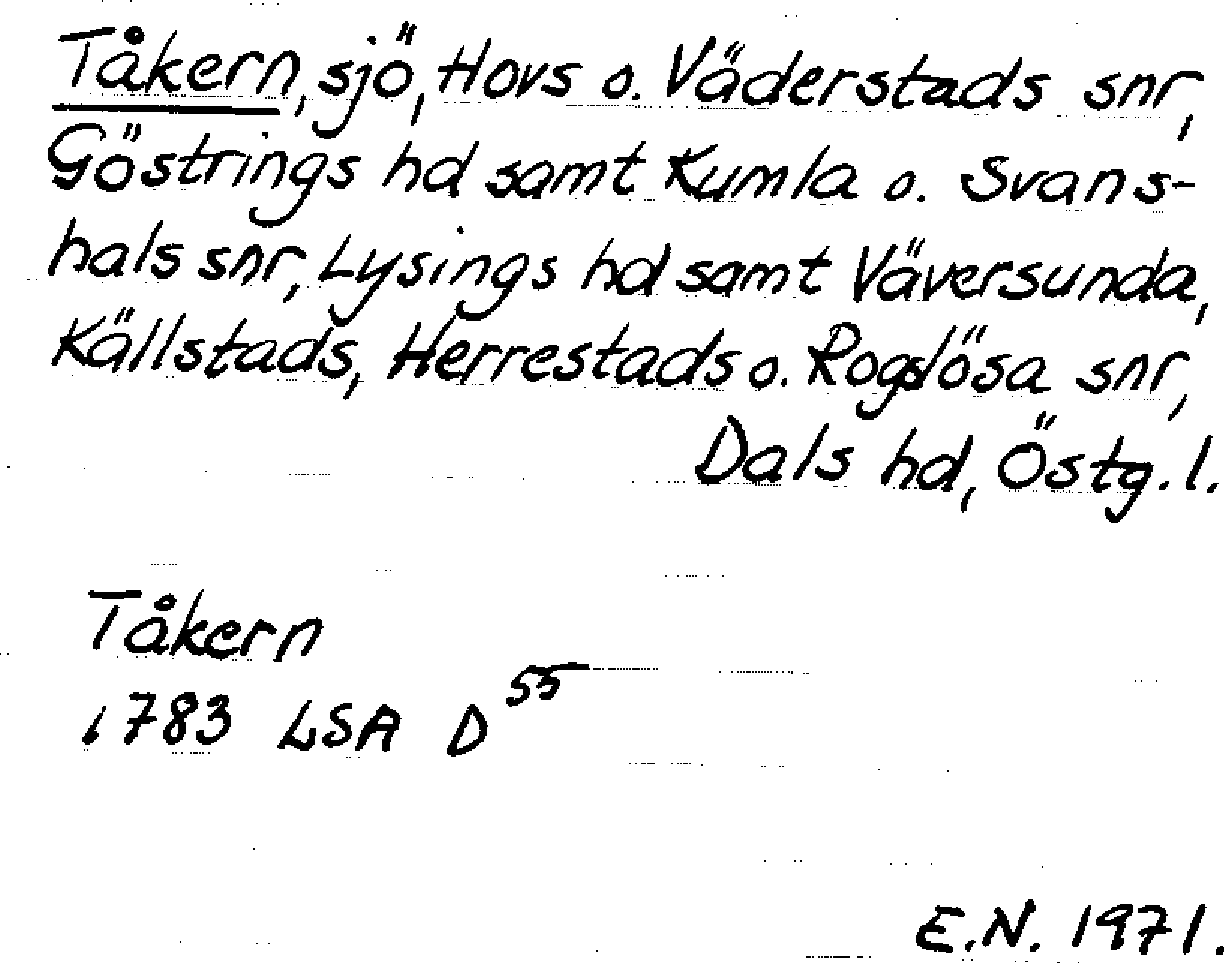 Tåkern, sjö, Hovs o. Väderstads snr,
Göstrings hd samt Kumla o. Svans-
hals snr, Lysings hd samt Väversunda,
Källstads, Herrestads o. Rogslösa snr,
Dals hd, Östg. l.
Tåkern
1783 LSA D 55
E.N. 1971.